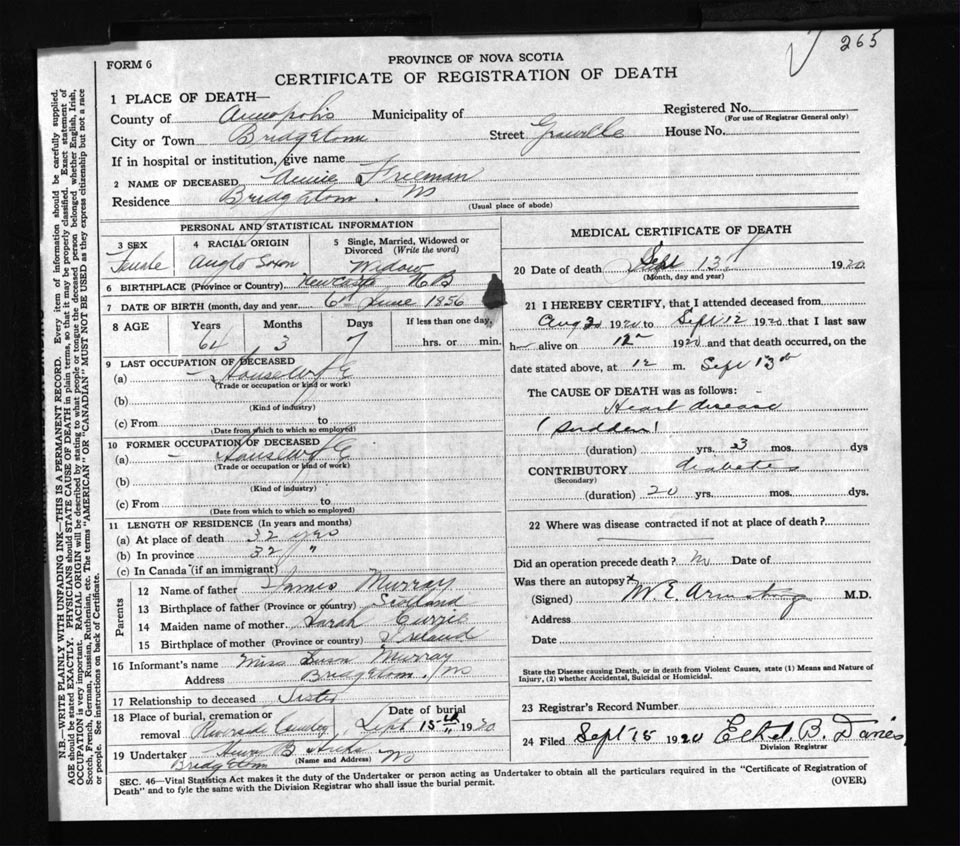 265
PROVINCE OF NOVA SCOTIA
FORM 6
CERTIFICATE OF REGISTRATION OF DEATH
1 PLACE OF DEATH—
County of Annapolis Municipality of Registered No.
(For use of Registrar General only)
City or Town Bridgetown Street Granville House No.
If in hospital or institution, give name
2 NAME OF DECEASED Annie Freeman
Residence Bridgetown
(Usual place of abode)
PERSONAL AND STATISTICAL INFORMATION
3 SEX
Female
4 RACIAL ORIGIN
Anglo Saxon
5 Single, Married, Widowed or Divorced (Write the word)
Widow
6 BIRTHPLACE (Province or Country) Newcastle N B
7 DATE OF BIRTH (month, day and year) 6th June 1856
8 AGE Years Months Days If less than one day,
64 3 7 hrs. or min.
9 LAST OCCUPATION OF DECEASED
(a) Housewife
(Trade or occupation or kind or work)
(b)
(Kind of industry)
(c) From to
(Date from which to which so employed)
10 FORMER OCCUPATION OF DECEASED
(a) Housewife
(Trade or occupation or kind of work)
(b)
(Kind of industry)
(c) From to
(Date from which to which so employed)
11 LENGTH OF RESIDENCE (In years and months)
(a) At place of death 32 yrs
(b) In province 32 "
(c) In Canada (if an immigrant)
Parents
12 Name of father James Murray
13 Birthplace of father (Province or country) Scotland
14 Maiden name of mother Sarah Currie
15 Birthplace of mother (Province or country) Ireland
16 Informant's name Miss Murray
Address Bridgetown, NS
17 Relationship to deceased Sister
18 Place of burial, cremation or removal Riverside Cemetery Date of burial Sept 15th 1920
19 Undertaker B. Hicks
(Name and Address)
Bridgetown NS
MEDICAL CERTIFICATE OF DEATH
20 Date of death Sept 13 1920
(Month, day and year)
21 I HEREBY CERTIFY, that I attended deceased from
Aug 30 1920 to Sept 12 1920 that I last saw
h alive on 12th 1920 and that death occurred, on the
date stated above, at 12 m. Sept 13th
The CAUSE OF DEATH was as follows:
Heart disease
(sudden)
(duration) yrs. 3 mos. dys
CONTRIBUTORY diabetes
(Secondary)
(duration) 20 yrs. mos. dys.
22 Where was disease contracted if not at place of death?
Did an operation precede death? No Date of
Was there an autopsy?
(Signed) M. E. Armstrong M.D.
Address
Date
State the Disease causing Death, or in death from Violent Causes, state (1) Means and Nature of
Injury, (2) whether Accidental, Suicidal or Homicidal.
23 Registrar's Record Number
24 Filed Sept 15 1920 Ethel B. Davies
Division Registrar
SEC. 46—Vital Statistics Act makes it the duty of the Undertaker or person acting as Undertaker to obtain all the particulars required in the "Certificate of Registration of
Death" and to fyle the same with the Division Registrar who shall issue the burial permit.
(OVER)
N.B.—WRITE PLAINLY WITH UNFADING INK—THIS IS A PERMANENT RECORD. Every item of information should be carefully supplied.
AGE should be stated EXACTLY. PHYSICIANS should STATE CAUSE OF DEATH in plain terms, so that it may be properly classified. Exact statement of
OCCUPATION is very important. RACIAL ORIGIN will be described by stating to what people or tongue the deceased person belonged whether English, Irish,
Scotch, French, German, Russian, Ruthenian, etc. The terms "AMERICAN" OR "CANADIAN" MUST NOT BE USED as they express citizenship but not a race
or people. See instructions on back of Certificate.